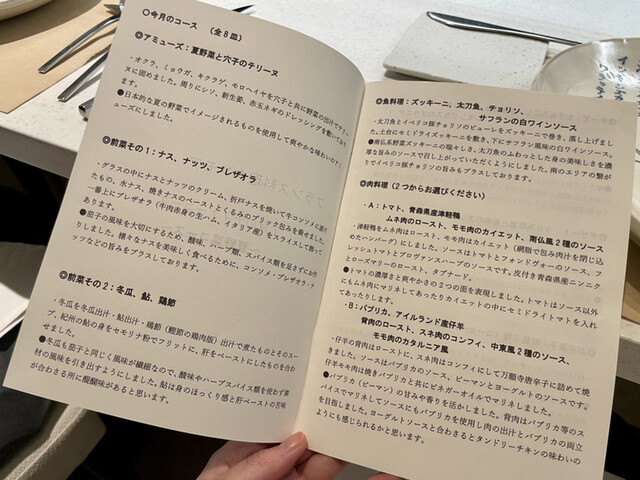 〇今月のコース　(全8皿)
◎アミューズ：夏野菜と穴子のテリーヌ
・オクラ、ミョウガ、キクラゲ、モロヘイヤを穴子と共に野菜の出汁でテリーヌに固めました。周りにシソ、新生姜、赤玉ネギのドレッシングを敷いております。
●日本的な夏の野菜でイメージされるものを使用して爽やかな味わいのアミューズにしました。
◎前菜その1：ナス、ナッツ、ブレザオラ
・グラスの中にナスとナッツのクリーム、折戸ナスを焼いて牛コンソメに漬けたもの、水ナス、焼きナスのペーストとくるみのブリック包みを乗せました。
一番上にブレザオラ(牛肉赤身の生ハム、イタリア産)をスライスして飾ってあります。
●茄子の風味を大切にするため、酸味、ハーブ類、スパイス類を足さずにお作りしました。様々なナスを美味しく食べるために、コンソメ・ブレザオラ・ナッツなどの旨みをプラスしております。
◎前菜その2：冬瓜、鮎、鶏節
・冬瓜を冬瓜出汁・鮎出汁・鶏節(鰹節の鶏肉版)出汁で煮たものとそのスープ、紀州の鮎の身をセモリナ粉でフリットに、肝をペーストにしたものを合わせました。
●冬瓜も茄子と同じく風味が繊細なので、酸味やハーブスパイス類を使わず素材の風味を引き出すようにしました。鮎は身のほっくり感と肝ペーストの苦味が合わさる所に醍醐味があると思います。
◎魚料理：ズッキーニ、太刀魚、チョリソ、
サフランの白ワインソース
・太刀魚とイベリコ豚チョリソのピューレをズッキーニで巻き、蒸し上げました。土台にセミドライズッキーニを敷き、下にサフラン風味の白ワインソース。
●南仏系野菜ズッキーニの瑞々しさ、太刀魚のふわっとした身の美味しさを濃厚な旨みのソースで召し上がっていただくようにしました。南のエリアの繋がりでイベリコ豚チョリソの旨みもプラスしております。
◎肉料理(2つからお選びください)
・A：トマト、青森県産津軽鴨
ムネ肉のロースト、モモ肉のカイエット、南仏風2種のソース
・津軽鴨をムネ肉はロースト、モモ肉はカイエット(網脂で包み肉汁を閉じ込めたハンバーグ)にしました。ソースはトマトとフォンドヴォーのソース、フレッシュトマトとプロヴァンスハーブのソースです。皮付き青森県産ニンニクとローズマリーのロースト、タプナード。
●トマトの濃厚さと爽やかさの2つの面を表現しました。トマトはソース以外にもムネ肉にマリネしてあったりカイエットの中にセミドライトマトを入れてあったりします。
・B：パプリカ、アイルランド産仔羊
背肉のロースト、スネ肉のコンフィ、中東風2種のソース、
モモ肉のカタルニア風
・仔羊の背肉はローストに、スネ肉はコンフィにして万願寺唐辛子に詰めて焼きました。ソースはパプリカのソース、ピーマンとヨーグルトのソースです。
仔羊モモ肉は焼きパプリカと共にビネガーオイルでマリネしました。
●パプリカ(ピーマン)の甘みや香りを活かしました。背肉はパプリカ等のスパイスでマリネしてソースにもパプリカを使用し肉の出汁とパプリカの両立を目指しました。ヨーグルトソースと合わさるとタンドリーチキンの味わいのようにも感じられるかと思います。